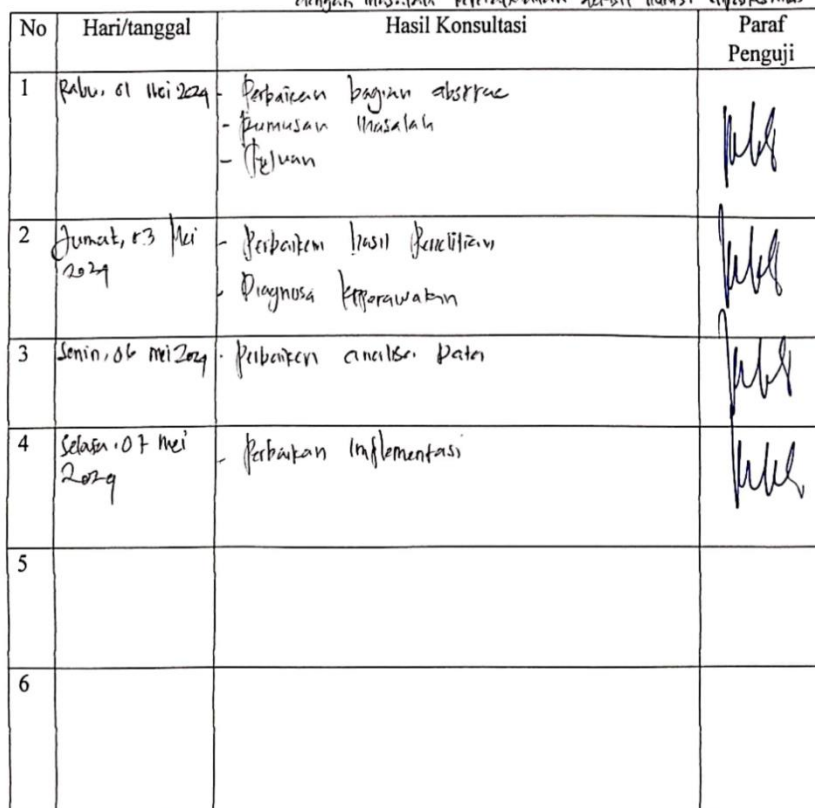 dengan masalah
No Hari/tanggal Hasil Konsultasi Paraf Penguji
1 Rabu, 01 Mei 2024 - Perbaikan bagian abstrac
- Rumusan Masalah
- Tujuan
2 Jumat, 03 Mei 2024 - Perbaikan hasil Penelitian
- Diagnosa keperawatan
3 Senin, 06 mei 2024 - Perbaikan analisa Data
4 Selasa, 07 Mei 2024 - Perbaikan Implementasi
5
6